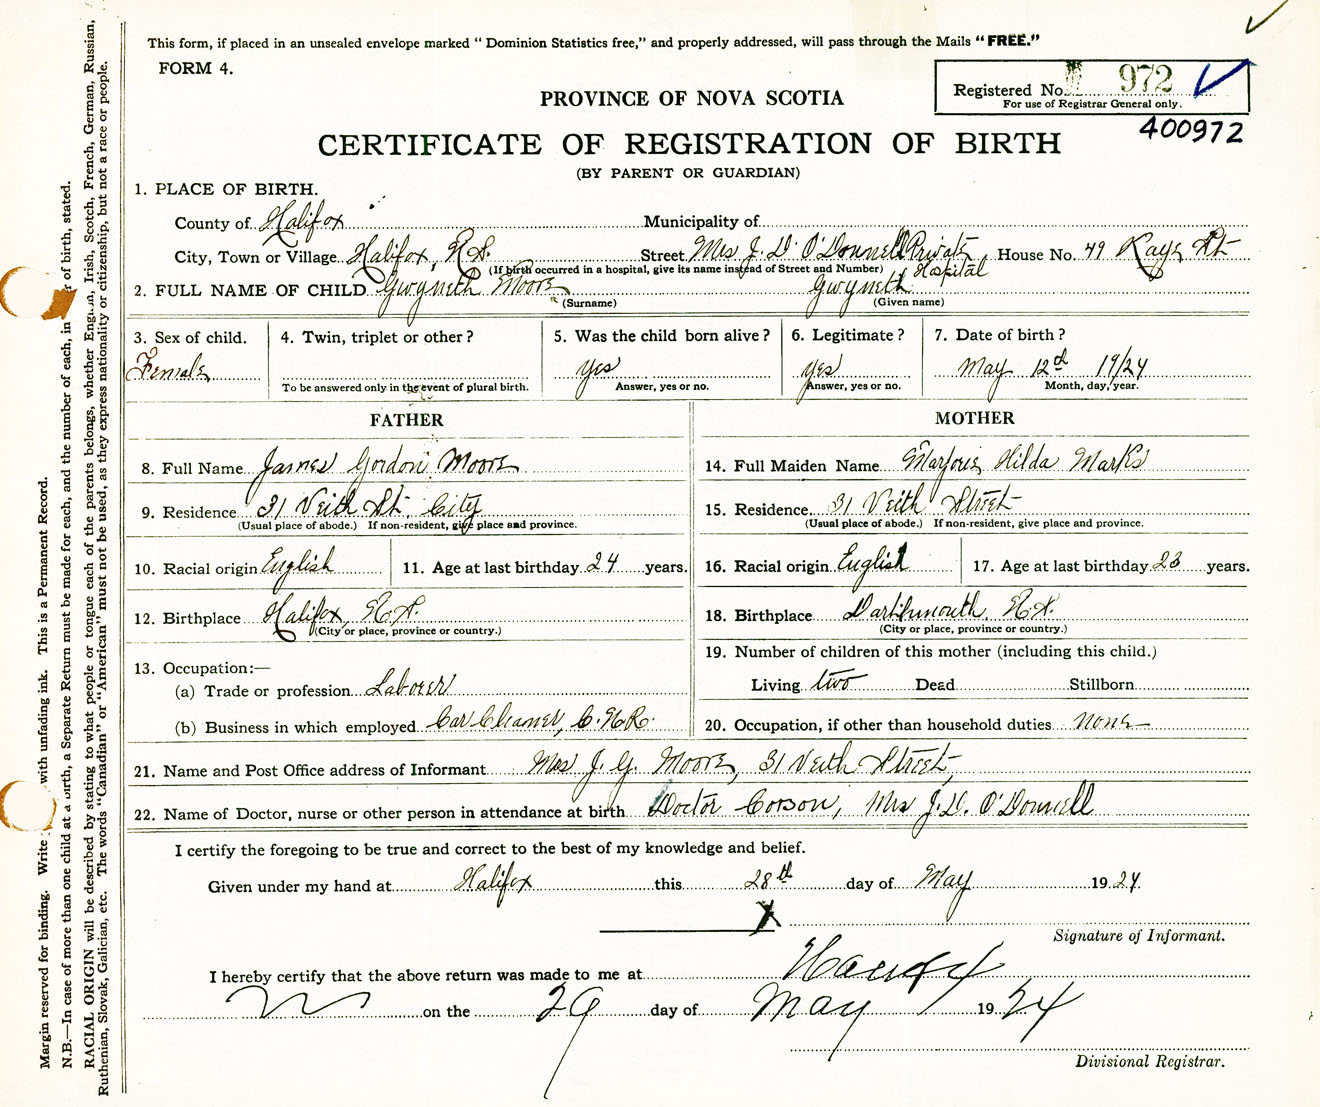 This form, if placed in an unsealed envelope marked “ Dominion Statistics free,” and properly addressed, will pass through the Mails “FREE.”
FORM 4.
Registered No. 972
For use of Registrar General only.
400972
PROVINCE OF NOVA SCOTIA
CERTIFICATE OF REGISTRATION OF BIRTH
(BY PARENT OR GUARDIAN)
1. PLACE OF BIRTH.
County of Halifax Municipality of
City, Town or Village Halifax, N.S. Street Mrs J. D. O'Donnell Private Hospital House No. 49 Kaye St
(If birth occurred in a hospital, give its name instead of Street and Number)
2. FULL NAME OF CHILD Gwyneth Moore Gwyneth
(Surname) (Given name)
3. Sex of child. 4. Twin, triplet or other ? 5. Was the child born alive ? 6. Legitimate ? 7. Date of birth ?
Female yes yes May 12th 19/24
To be answered only in the event of plural birth. Answer, yes or no. Answer, yes or no. Month, day, year.
FATHER MOTHER
8. Full Name James Gordon Moore 14. Full Maiden Name Marjorie Hilda Marks
9. Residence 31 Veith St. City 15. Residence 31 Veith Street
(Usual place of abode.) If non-resident, give place and province. (Usual place of abode.) If non-resident, give place and province.
10. Racial origin English 11. Age at last birthday 24 years. 16. Racial origin English 17. Age at last birthday 23 years.
12. Birthplace Halifax, N.S. 18. Birthplace Dartmouth, N.S.
(City or place, province or country.) (City or place, province or country.)
13. Occupation:— 19. Number of children of this mother (including this child.)
(a) Trade or profession Laborer Living two Dead Stillborn
(b) Business in which employed Car Cleaner, C.N.R. 20. Occupation, if other than household duties none
21. Name and Post Office address of Informant Mrs J. G. Moore, 31 Veith Street,
22. Name of Doctor, nurse or other person in attendance at birth Doctor Corson, Mrs J.D. O'Donnell
I certify the foregoing to be true and correct to the best of my knowledge and belief.
Given under my hand at Halifax this 28th day of May 1924.
X
Signature of Informant.
I hereby certify that the above return was made to me at
on the 29 day of May 1924
Divisional Registrar.
Margin reserved for binding. Write with unfading ink. This is a Permanent Record.
N.B.—In case of more than one child at a birth, a Separate Return must be made for each, and the number of each, in of birth, stated.
RACIAL ORIGIN will be described by stating to what people or tongue each of the parents belongs, whether English, Irish, Scotch, French, German, Russian,
Ruthenian, Slovak, Galician, etc. The words “Canadian” or “American” must not be used, as they express nationality or citizenship, but not a race or people.